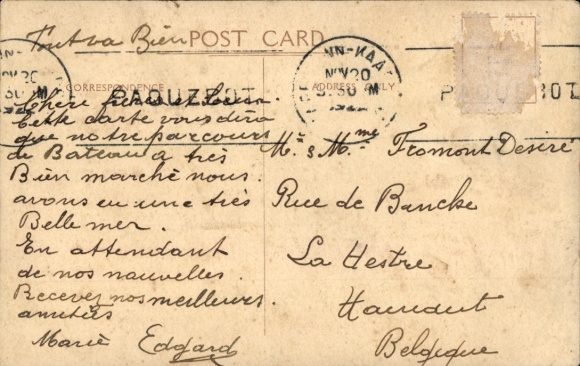 Tout va Bien
POST CARD
NN-KAA
NOV 20
PAQUEBOT
CORRESPONDENCE
ADDRESS ONLY
Chère frère et
Cette carte vous dira
que notre parcours
de Bateau a très
Bien marché nous
avons eu une très
Belle mer.
En attendant
de nos nouvelles.
Recevez nos meilleures
amitiés
Marie Edgard
Mr & Mme Fromont Desiré
Rue de Bancke
La Hestre
Hainaut
Belgique